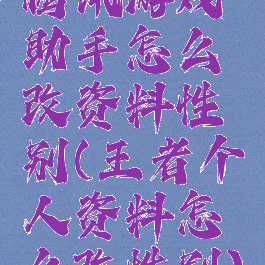 腾讯游戏
助手怎么
改资料性
别(王者个
人资料怎
么改性别)